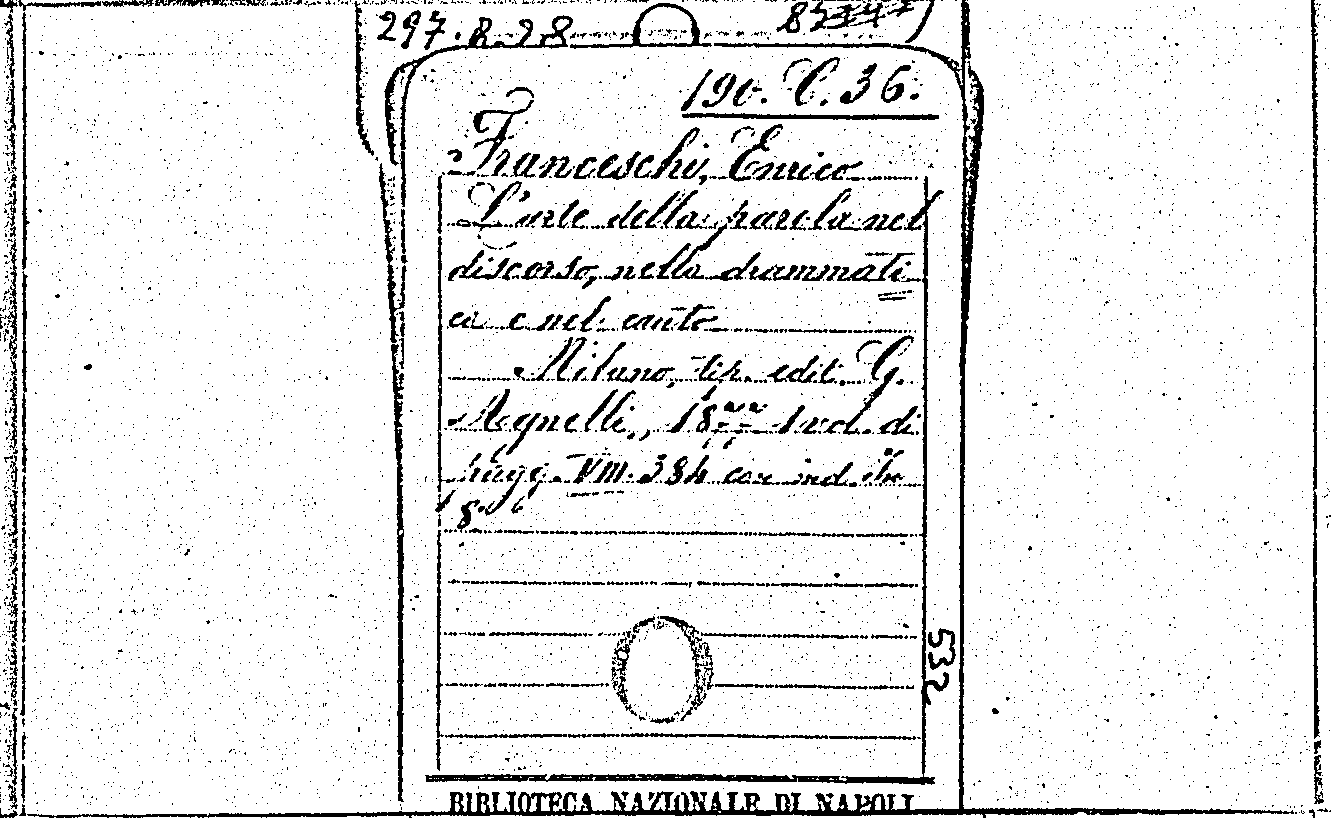 297.8.28
190. C. 36.
Franceschi, Enrico
L'arte della parola nel
discorso, nella drammati
ca e nel canto
Milano, tip. edit. G.
Agnelli, 1877 1 vol. di
pagg. VIII. 384 con ind. in
8°
532
BIBLIOTECA NAZIONALE DI NAPOLI